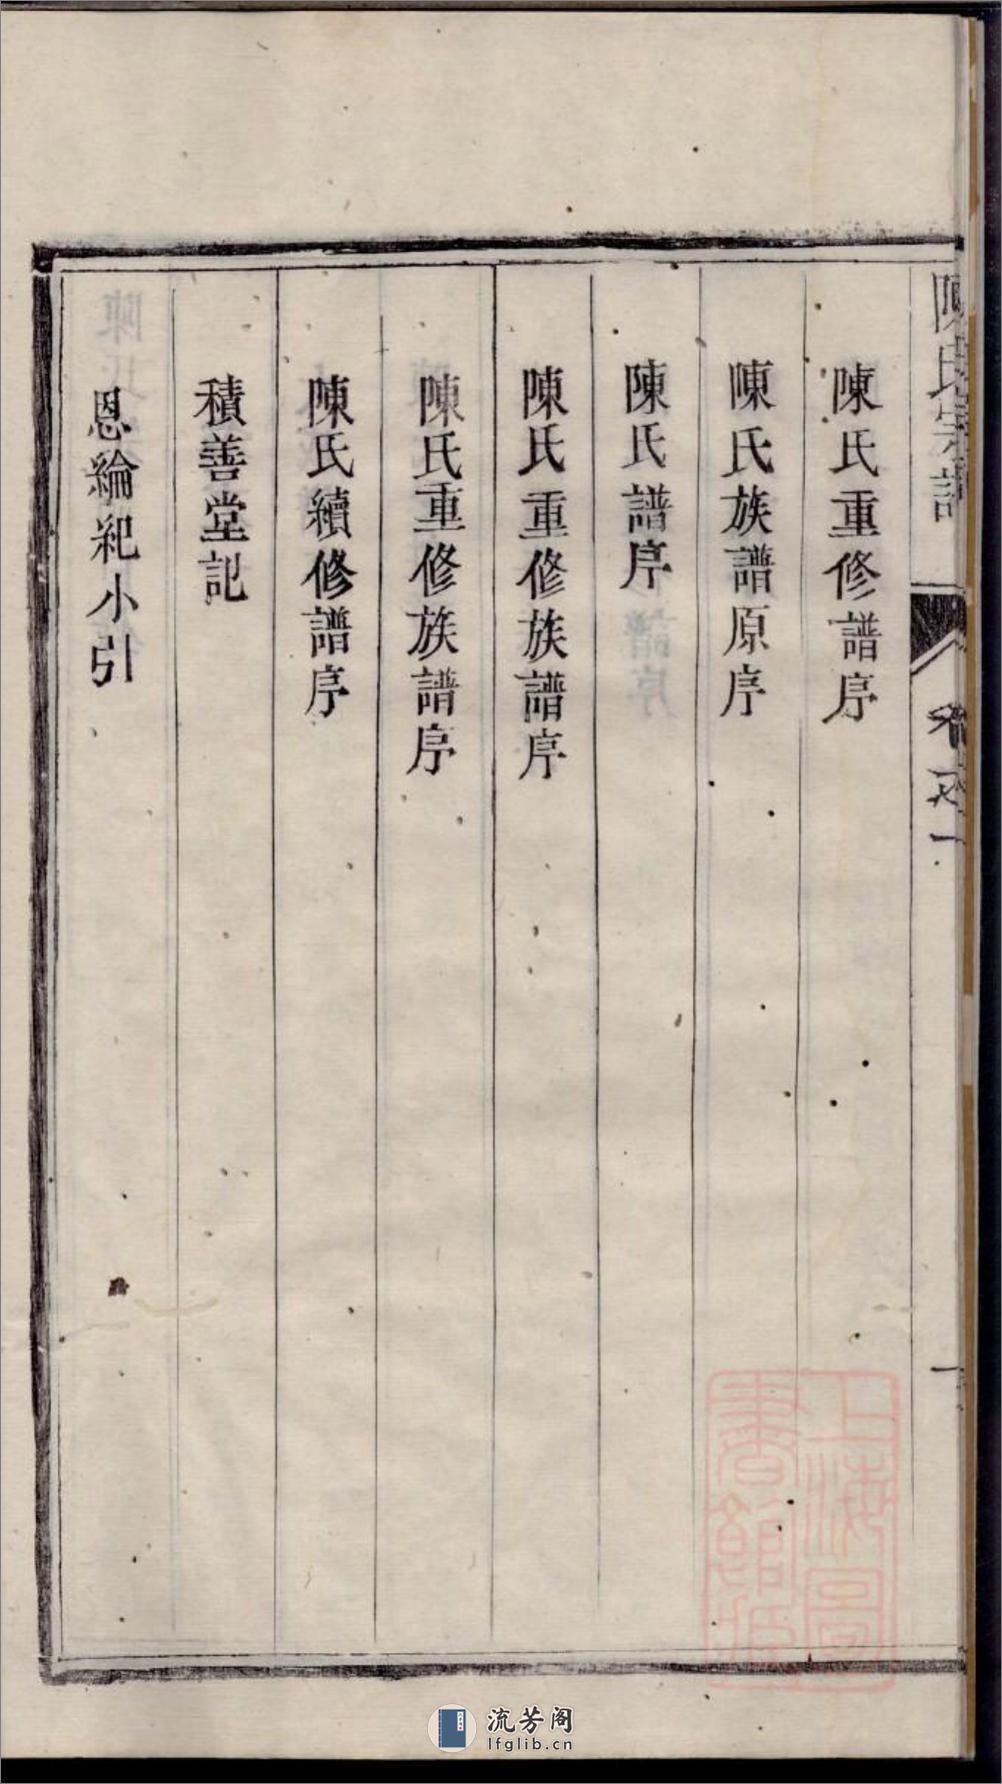 陳氏宗譜
卷之一
一
陳氏重修譜序
陳氏族譜原序
陳氏譜序
陳氏重修族譜序
陳氏重修族譜序
陳氏續修譜序
積善堂記
恩綸紀小引
上海圖
書館藏
流芳阁
lfglib.cn